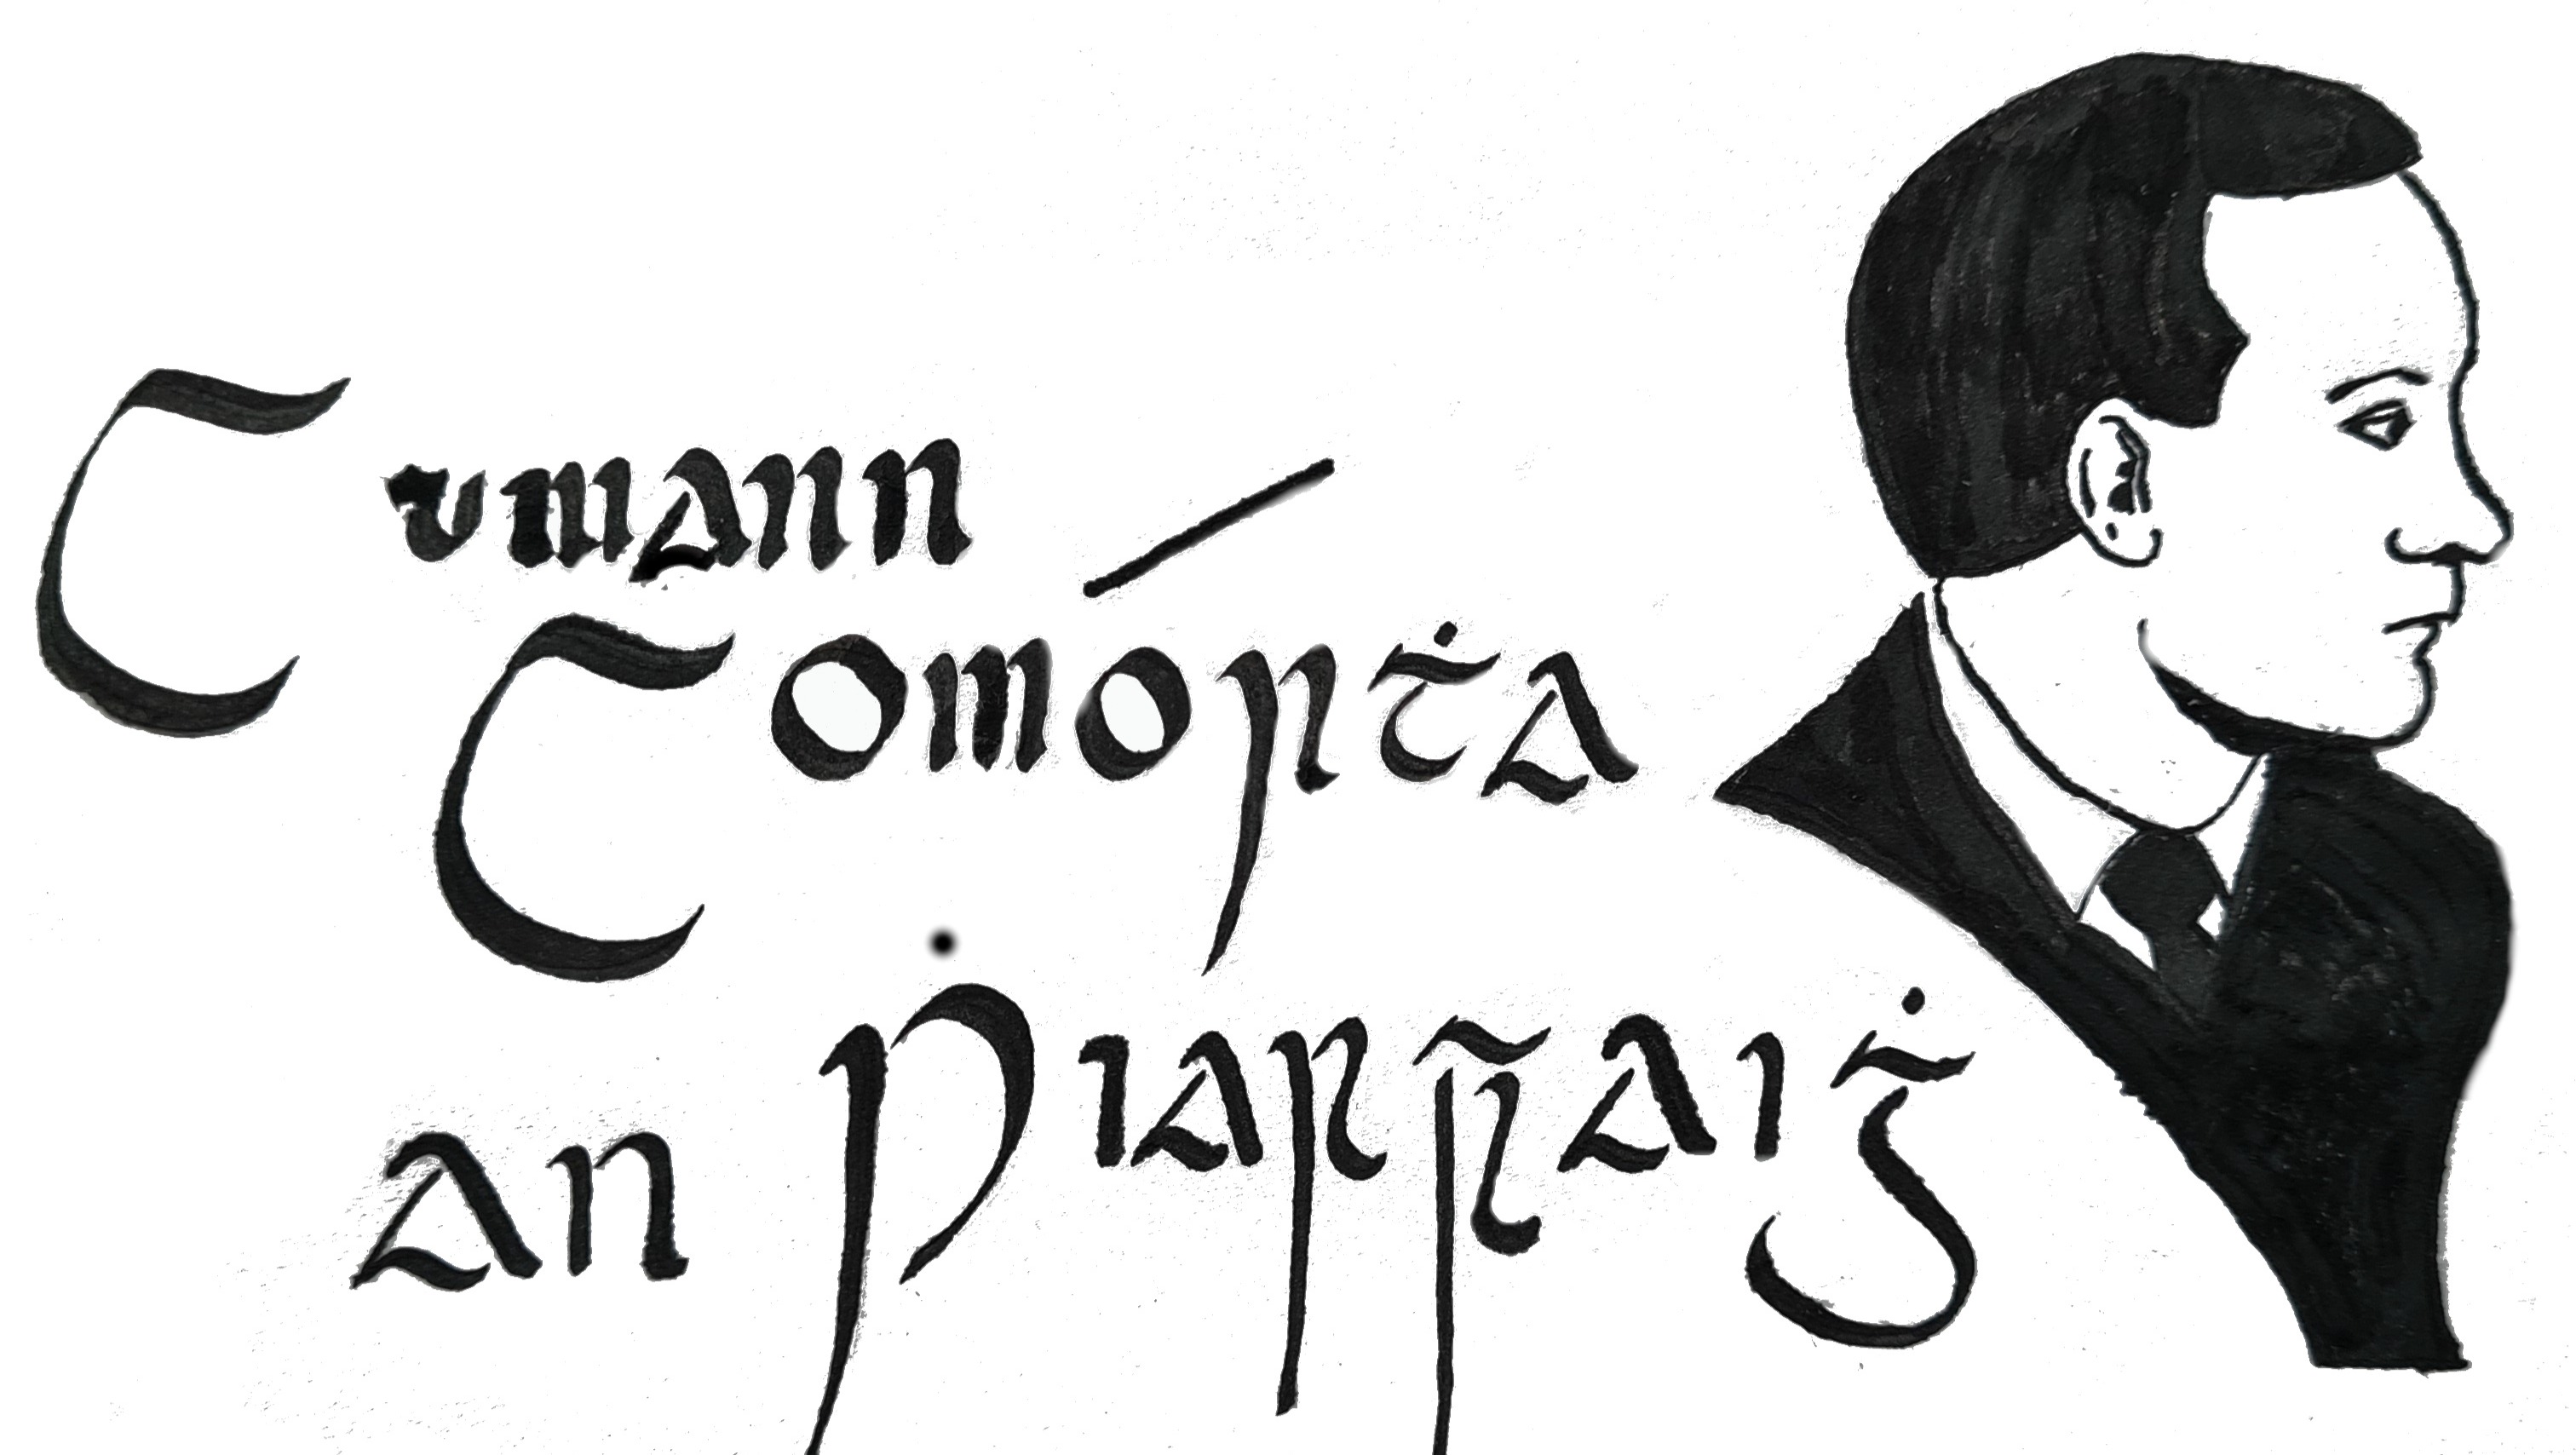 Cumann
Comórṫa
an Ṗiarsaiġ